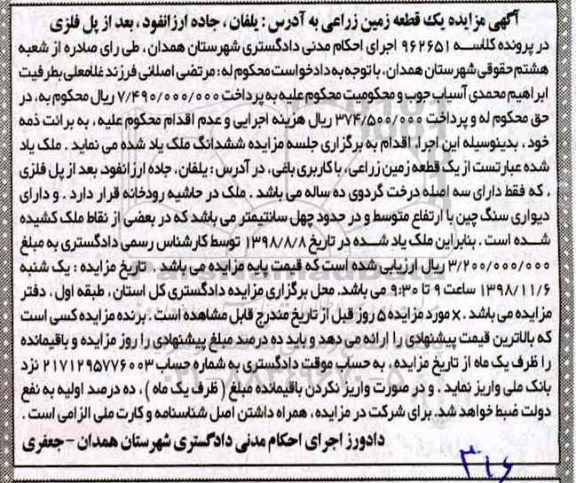 آگهی مزایده یک قطعه زمین زراعی به آدرس : یلفان ، جاده ارزانفود ، بعد از پل فلزی
در پرونده کلاسه ۹۶۲۶۵۱ اجرای احکام مدنی دادگستری شهرستان همدان ، طی رای صادره از شعبه
هشتم حقوقی شهرستان همدان ، با توجه به دادخواست محکوم له : مرتضی اصلانی فرزند غلامعلی بطرفیت
ابراهیم محمدی آسیاب جوب و محکومیت محکوم علیه به پرداخت ۷/۴۹۰/۰۰۰/۰۰۰ ریال محکوم به ، در
حق محکوم له و پرداخت ۳۷۴/۵۰۰/۰۰۰ ریال هزینه اجرایی و عدم اقدام محکوم علیه ، به برائت ذمه
خود ، بدینوسیله این اجرا، اقدام به برگزاری جلسه مزایده ششدانگ ملک یاد شده می نماید . ملک یاد
شده عبارتست از یک قطعه زمین زراعی ، با کاربری باغی ، در آدرس : یلفان ، جاده ارزانفود، بعد از پل فلزی
، که فقط دارای سه اصله درخت گردوی ده ساله می باشد . ملک در حاشیه رودخانه قرار دارد . و دارای
دیواری سنگ چین با ارتفاع متوسط و در حدود چهل سانتیمتر می باشد که در بعضی از نقاط ملک کشیده
شده است . بنابراین ملک یاد شده در تاریخ ۱۳۹۸/۸/۸ توسط کارشناس رسمی دادگستری به مبلغ
۳/۲۰۰/۰۰۰/۰۰۰ ریال ارزیابی شده است که قیمت پایه مزایده می باشد . تاریخ مزایده : یک شنبه
۱۳۹۸/۱۱/۶ ساعت ۹ تا ۹:۳۰ می باشد. محل برگزاری مزایده دادگستری کل استان ، طبقه اول ، دفتر
مزایده می باشد . x مورد مزایده ۵ روز قبل از تاریخ مندرج قابل مشاهده است . برنده مزایده کسی است
که بالاترین قیمت پیشنهادی را ارائه می دهد و باید ده درصد مبلغ پیشنهادی را روز مزایده و باقیمانده
را ظرف یک ماه از تاریخ مزایده ، به حساب موقت دادگستری به شماره حساب ۲۱۷۱۲۹۵۷۷۶۰۰۳ نزد
بانک ملی واریز نماید . و در صورت واریز نکردن باقیمانده مبلغ ( ظرف یک ماه ) ، ده درصد اولیه به نفع
دولت ضبط خواهد شد. برای شرکت در مزایده ، همراه داشتن اصل شناسنامه و کارت ملی الزامی است .
دادورز اجرای احکام مدنی دادگستری شهرستان همدان - جعفری
۳۱۶